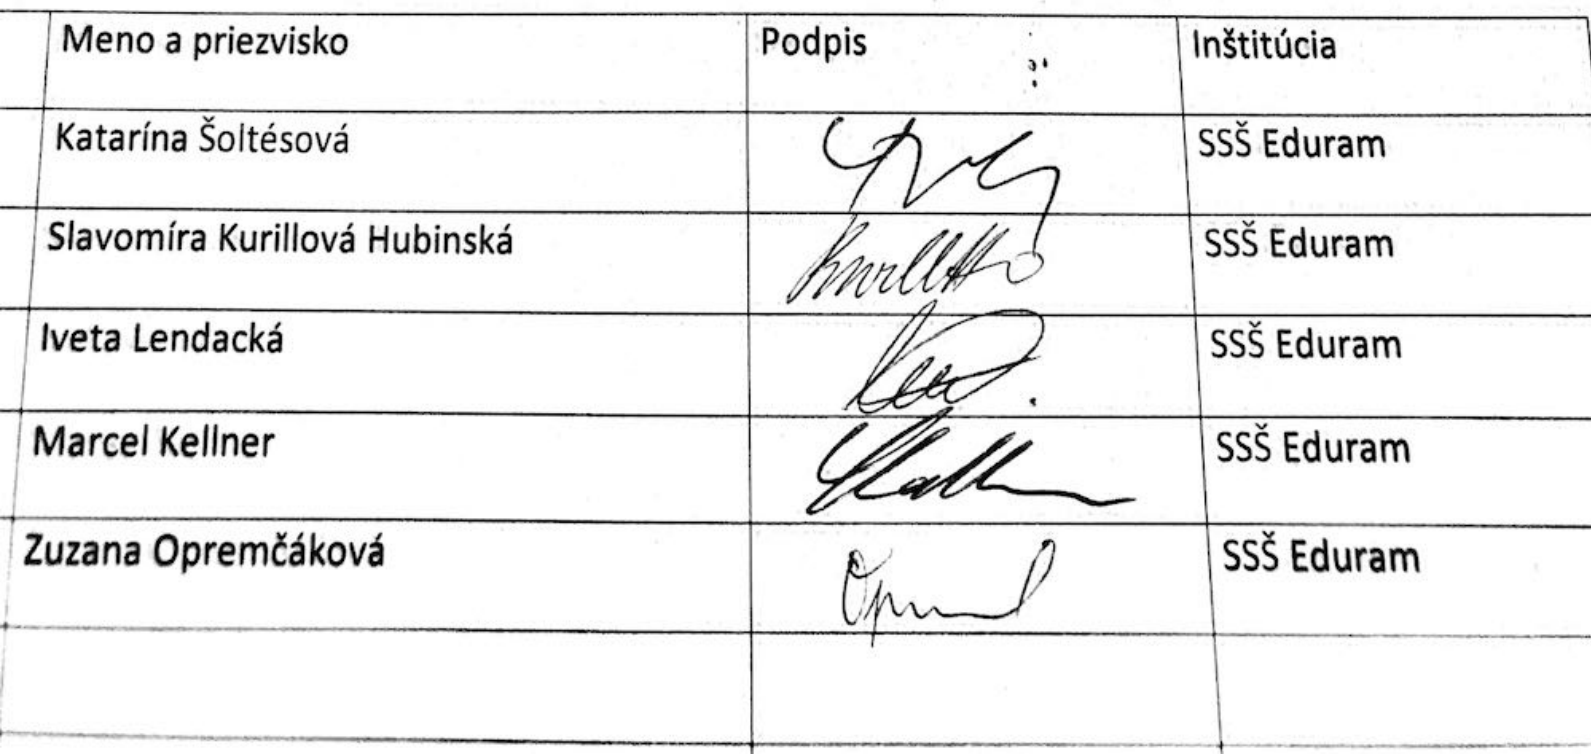 Meno a priezvisko Podpis Inštitúcia
Katarína Šoltésová SSŠ Eduram
Slavomíra Kurillová Hubinská SSŠ Eduram
Iveta Lendacká SSŠ Eduram
Marcel Kellner SSŠ Eduram
Zuzana Opremčáková SSŠ Eduram